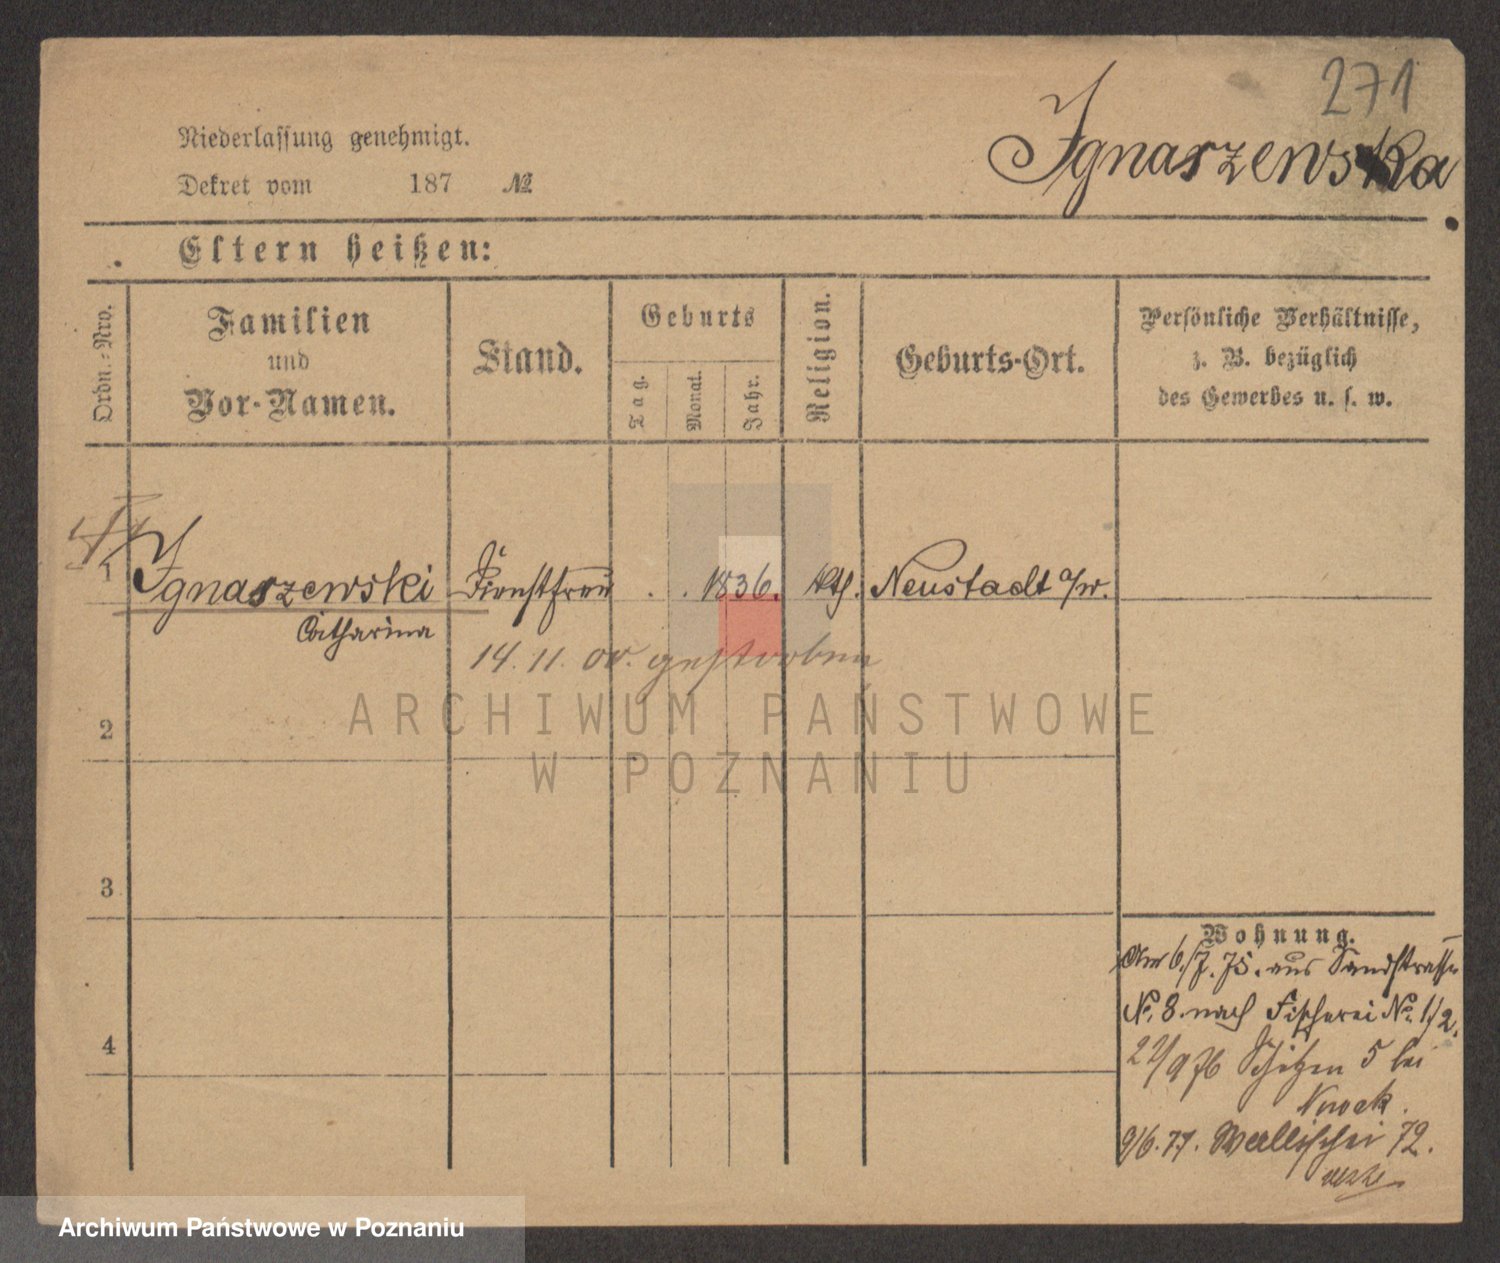 271
Ignaszewska.
Niederlassung genehmigt.
Dekret vom 187 №
Eltern heißen:
Ordn.-Nro.
Familien
und
Vor-Namen.
Stand.
Geburts
Tag.
Monat.
Jahr.
Religion.
Geburts-Ort.
Persönliche Verhältnisse,
z. B. bezüglich
des Gewerbes u. s. w.
1 Ignaszewski Dienstfrau . . 1836. kth. Neustadt a/w.
Catharina
14. 11. 00. gestorben
2
3
4
Wohnung.
Am 6./7. 75. aus Sandstrasse
No. 8. nach Fischerei No. 1/2.
22/9 76 Schützen 5 bei
9/6. 77. Wallischei 72.
ARCHIWUM PAŃSTWOWE
W POZNANIU
Archiwum Państwowe w Poznaniu